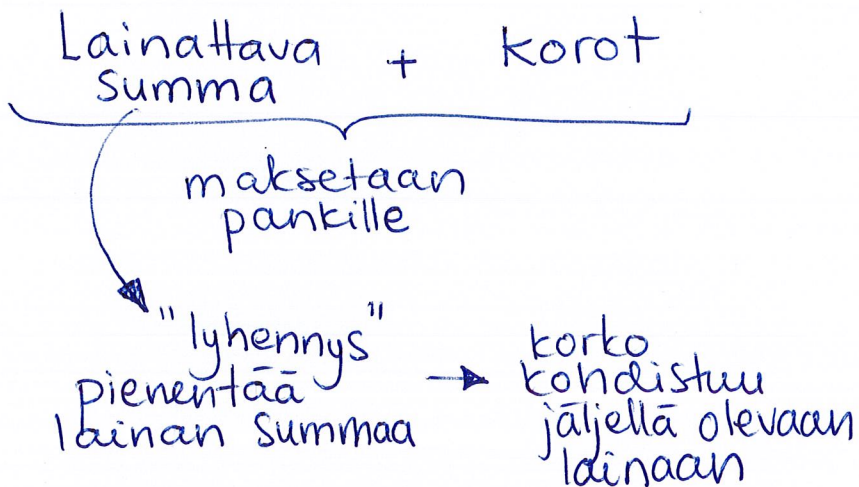 Lainattava + korot
summa
maksetaan
pankille
"lyhennys"
pienentää
lainan summaa
korko
kohdistuu
jäljellä olevaan
lainaan